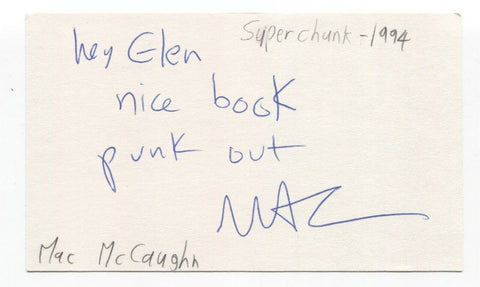 Superchunk - 1994
hey Glen
nice book
punk out
MAC
Mac McCaughn